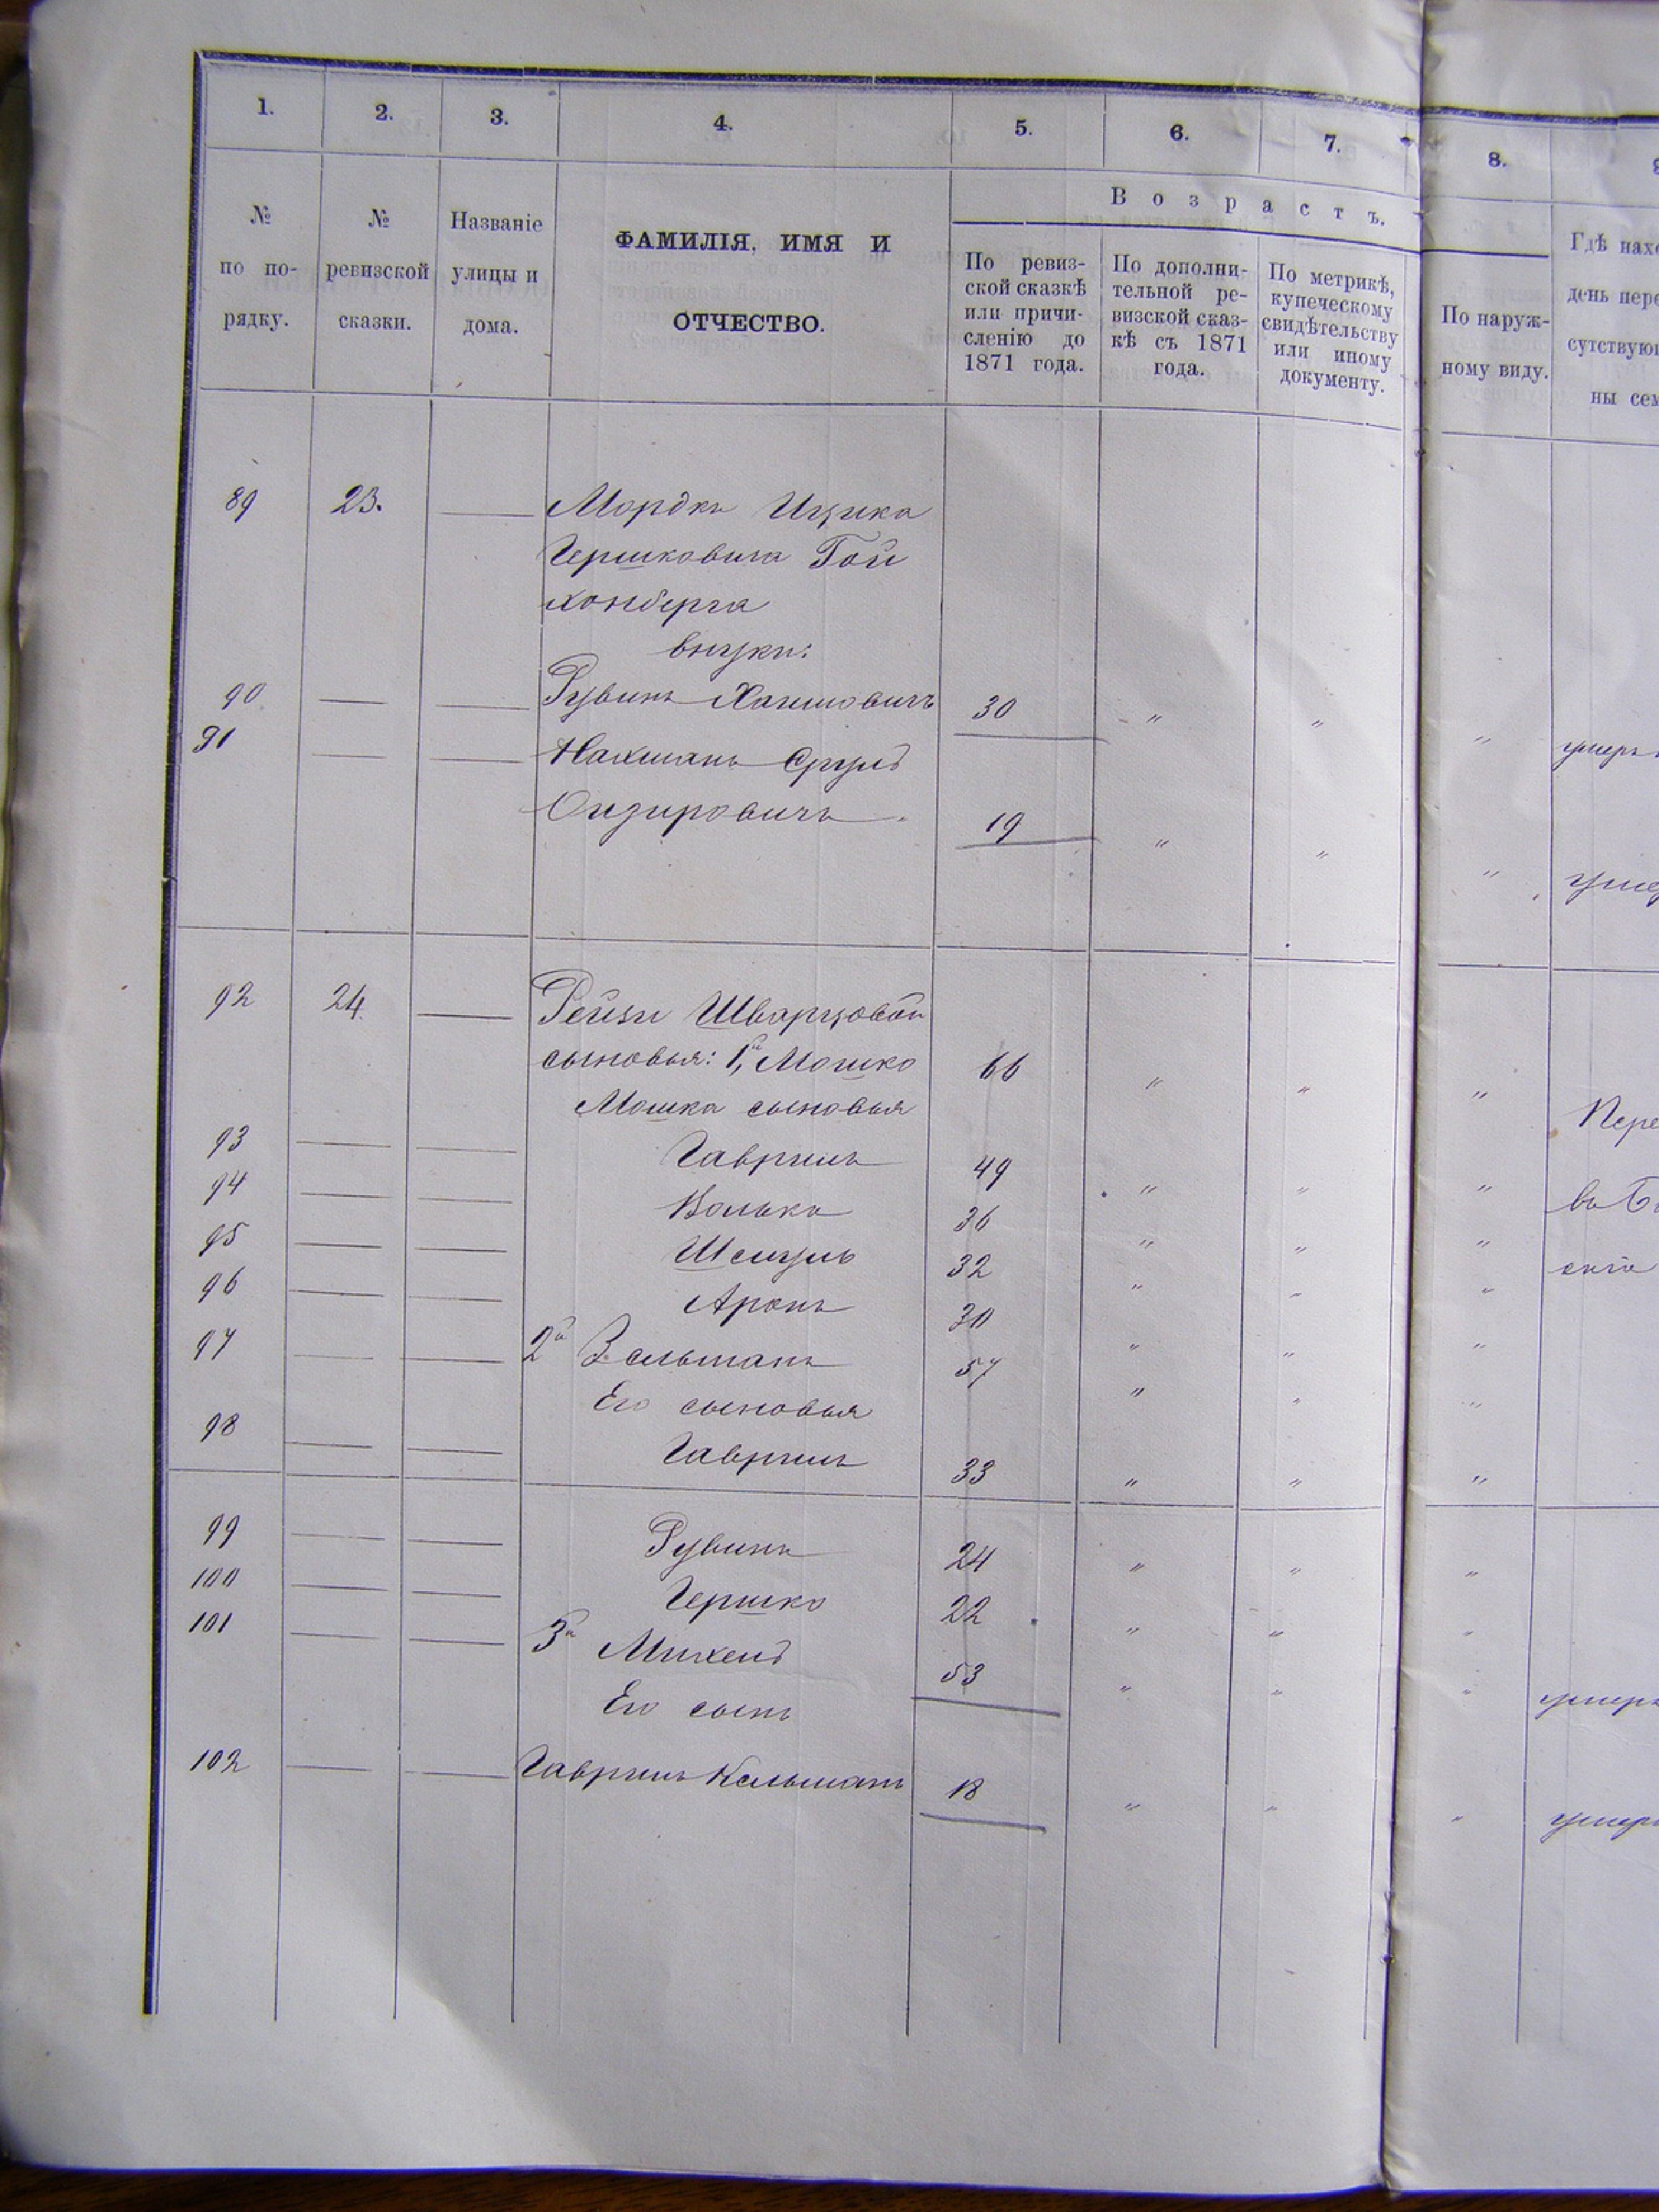 1. 2. 3. 4. 5. 6. 7. 8.
№ по по-рядку.
№ ревизской сказки.
Названіе улицы и дома.
ФАМИЛІЯ, ИМЯ И
ОТЧЕСТВО.
Возрастъ.
По ревиз-
ской сказкѣ
или причи-
сленію до
1871 года.
По дополни-
тельной ре-
визской сказ-
кѣ съ 1871
года.
По метрикѣ,
купеческому
свидѣтельству
или иному
документу.
По наруж-
ному виду.
Гдѣ нахо
день пере
сутствую
ны сем
89 23. — Мордка Ицика
Гершковича Гой
хонберга
внуки:
90 — — Рувинъ Хаимовичъ 30 " " " умеръ
91 — — Нахманъ Срулъ
19 " " "
92 24. — Рейзи Шварцовой
сыновья: 1й, Мошко 66 " " "
Мошка сыновья Пере
93 — — Гаврилъ 49 " " "
94 — — Волько 36 " " "
95 — — Шмуль 32 " " "
96 — — Аронъ 30 " " "
97 — — 2й Зельманъ 57 " " "
Его сыновья
98 — — Гаврилъ 33 " " "
99 — — Рувинъ 24 " " "
100 — — Гершко 22 " " "
101 — — 3й Михелъ 53 " " " умеръ
Его сынъ
102 — — Гаврилъ Кельманъ 18 " " " умеръ